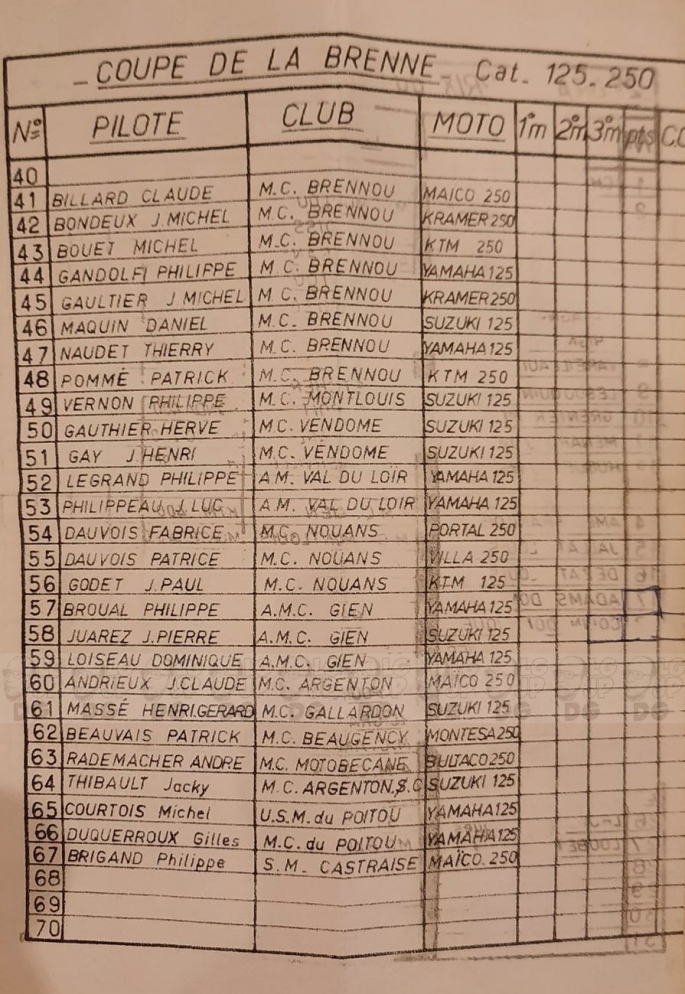 COUPE DE LA BRENNE Cat. 125.250
Nº PILOTE CLUB MOTO 1°m 2°m 3°m pts
40
41 BILLARD CLAUDE M.C. BRENNOU MAICO 250
42 BONDEUX J.MICHEL M.C. BRENNOU KRAMER 250
43 BOUET MICHEL M.C. BRENNOU KTM 250
44 GANDOLFI PHILIPPE M.C. BRENNOU YAMAHA 125
45 GAULTIER J MICHEL M.C. BRENNOU KRAMER 250
46 MAQUIN DANIEL M.C. BRENNOU SUZUKI 125
47 NAUDET THIERRY M.C. BRENNOU YAMAHA 125
48 POMMÉ PATRICK M.C. BRENNOU KTM 250
49 VERNON PHILIPPE M.C. MONTLOUIS SUZUKI 125
50 GAUTHIER HERVE M.C. VENDOME SUZUKI 125
51 GAY J.HENRI M.C. VENDOME SUZUKI 125
52 LEGRAND PHILIPPE A.M. VAL DU LOÏR YAMAHA 125
53 PHILIPPEAU J.LUC A.M. VAL DU LOIR YAMAHA 125
54 DAUVOIS FABRICE M.C. NOUANS PORTAL 250
55 DAUVOIS PATRICE M.C. NOUANS VILLA 250
56 GODET J.PAUL M.C. NOUANS KTM 125
57 BROUAL PHILIPPE A.M.C. GIEN YAMAHA 125
58 JUAREZ J.PIERRE A.M.C. GIEN SUZUKI 125
59 LOISEAU DOMINIQUE A.M.C. GIEN YAMAHA 125
60 ANDRIEUX J.CLAUDE M.C. ARGENTON MAÏCO 250
61 MASSÉ HENRI.GERARD M.C. GALLARDON SUZUKI 125
62 BEAUVAIS PATRICK M.C. BEAUGENCY MONTESA 250
63 RADEMACHER ANDRE M.C. MOTOBECANE BULTACO 250
64 THIBAULT Jacky M.C. ARGENTON.S.C SUZUKI 125
65 COURTOIS Michel U.S.M. du POITOU YAMAHA 125
66 DUQUERROUX Gilles M.C. du POITOU YAMAHA 125
67 BRIGAND Philippe S.M. CASTRAISE MAÏCO.250
68
69
70